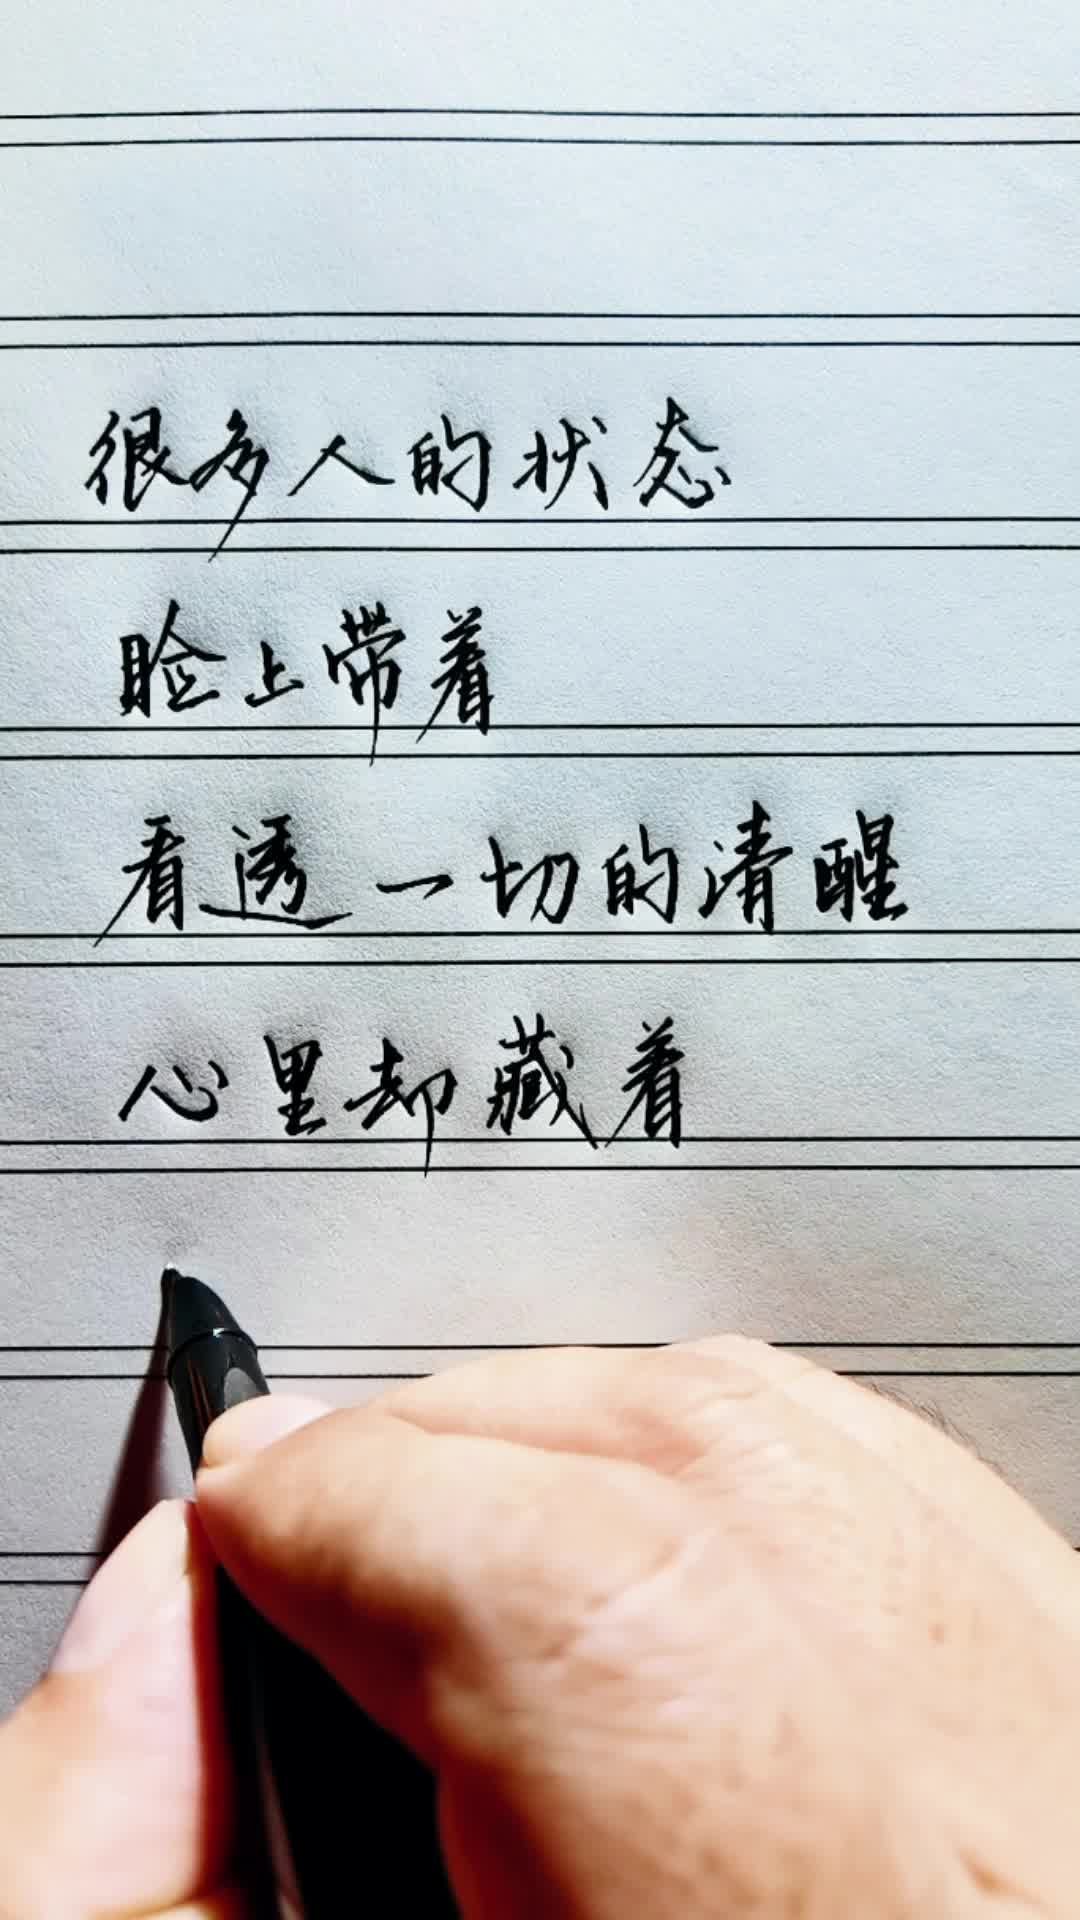 很多人的状态
脸上带着
看透一切的清醒
心里却藏着